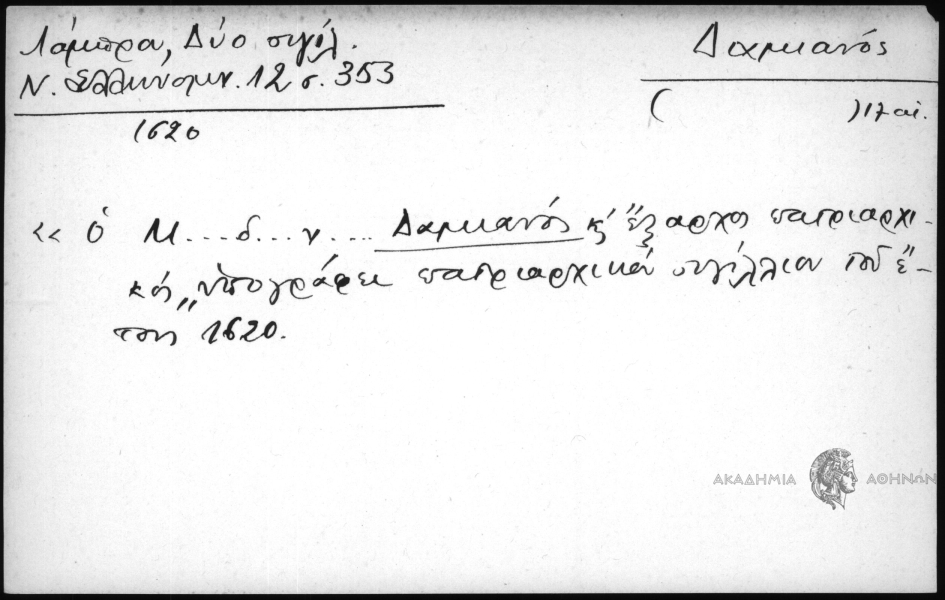 Λάμπρου, Δύο σιγίλ.
Ν. Ἑλληνομν. 12 σ. 353
1620
Δαμιανός
( ) 17 αἰ.
<< ὁ Μ...δ...ν.... Δαμιανός κ ἔξαρχος πατριαρχι-
κός,, ὑπογράφει πατριαρχικόν σιγίλλιον τοῦ ἔ-
τους 1620.
ΑΚΑΔΗΜΙΑ ΑΘΗΝΩΝ